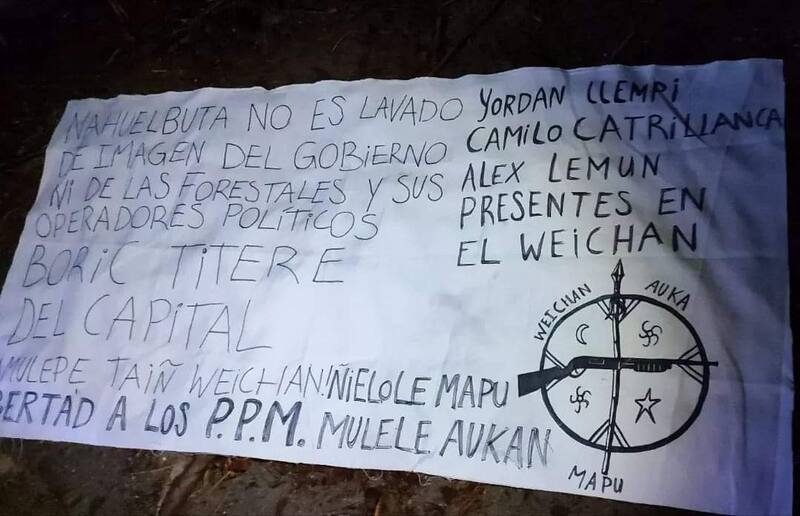 NAHUELBUTA NO ES LAVADO
DE IMAGEN DEL GOBIERNO
NI DE LAS FORESTALES Y SUS
OPERADORES POLÍTICOS
BORIC TITERE
DEL CAPITAL
AMULEPE TAIÑ WEICHAN!
BERTAD A LOS P.P.M.
YORDAN LLEMPI
CAMILO CATRILLANCA
ALEX LEMUN
PRESENTES EN
EL WEICHAN
ÑIELOLE MAPU
MULELE AUKAN
WEICHAN AUKA
MAPU